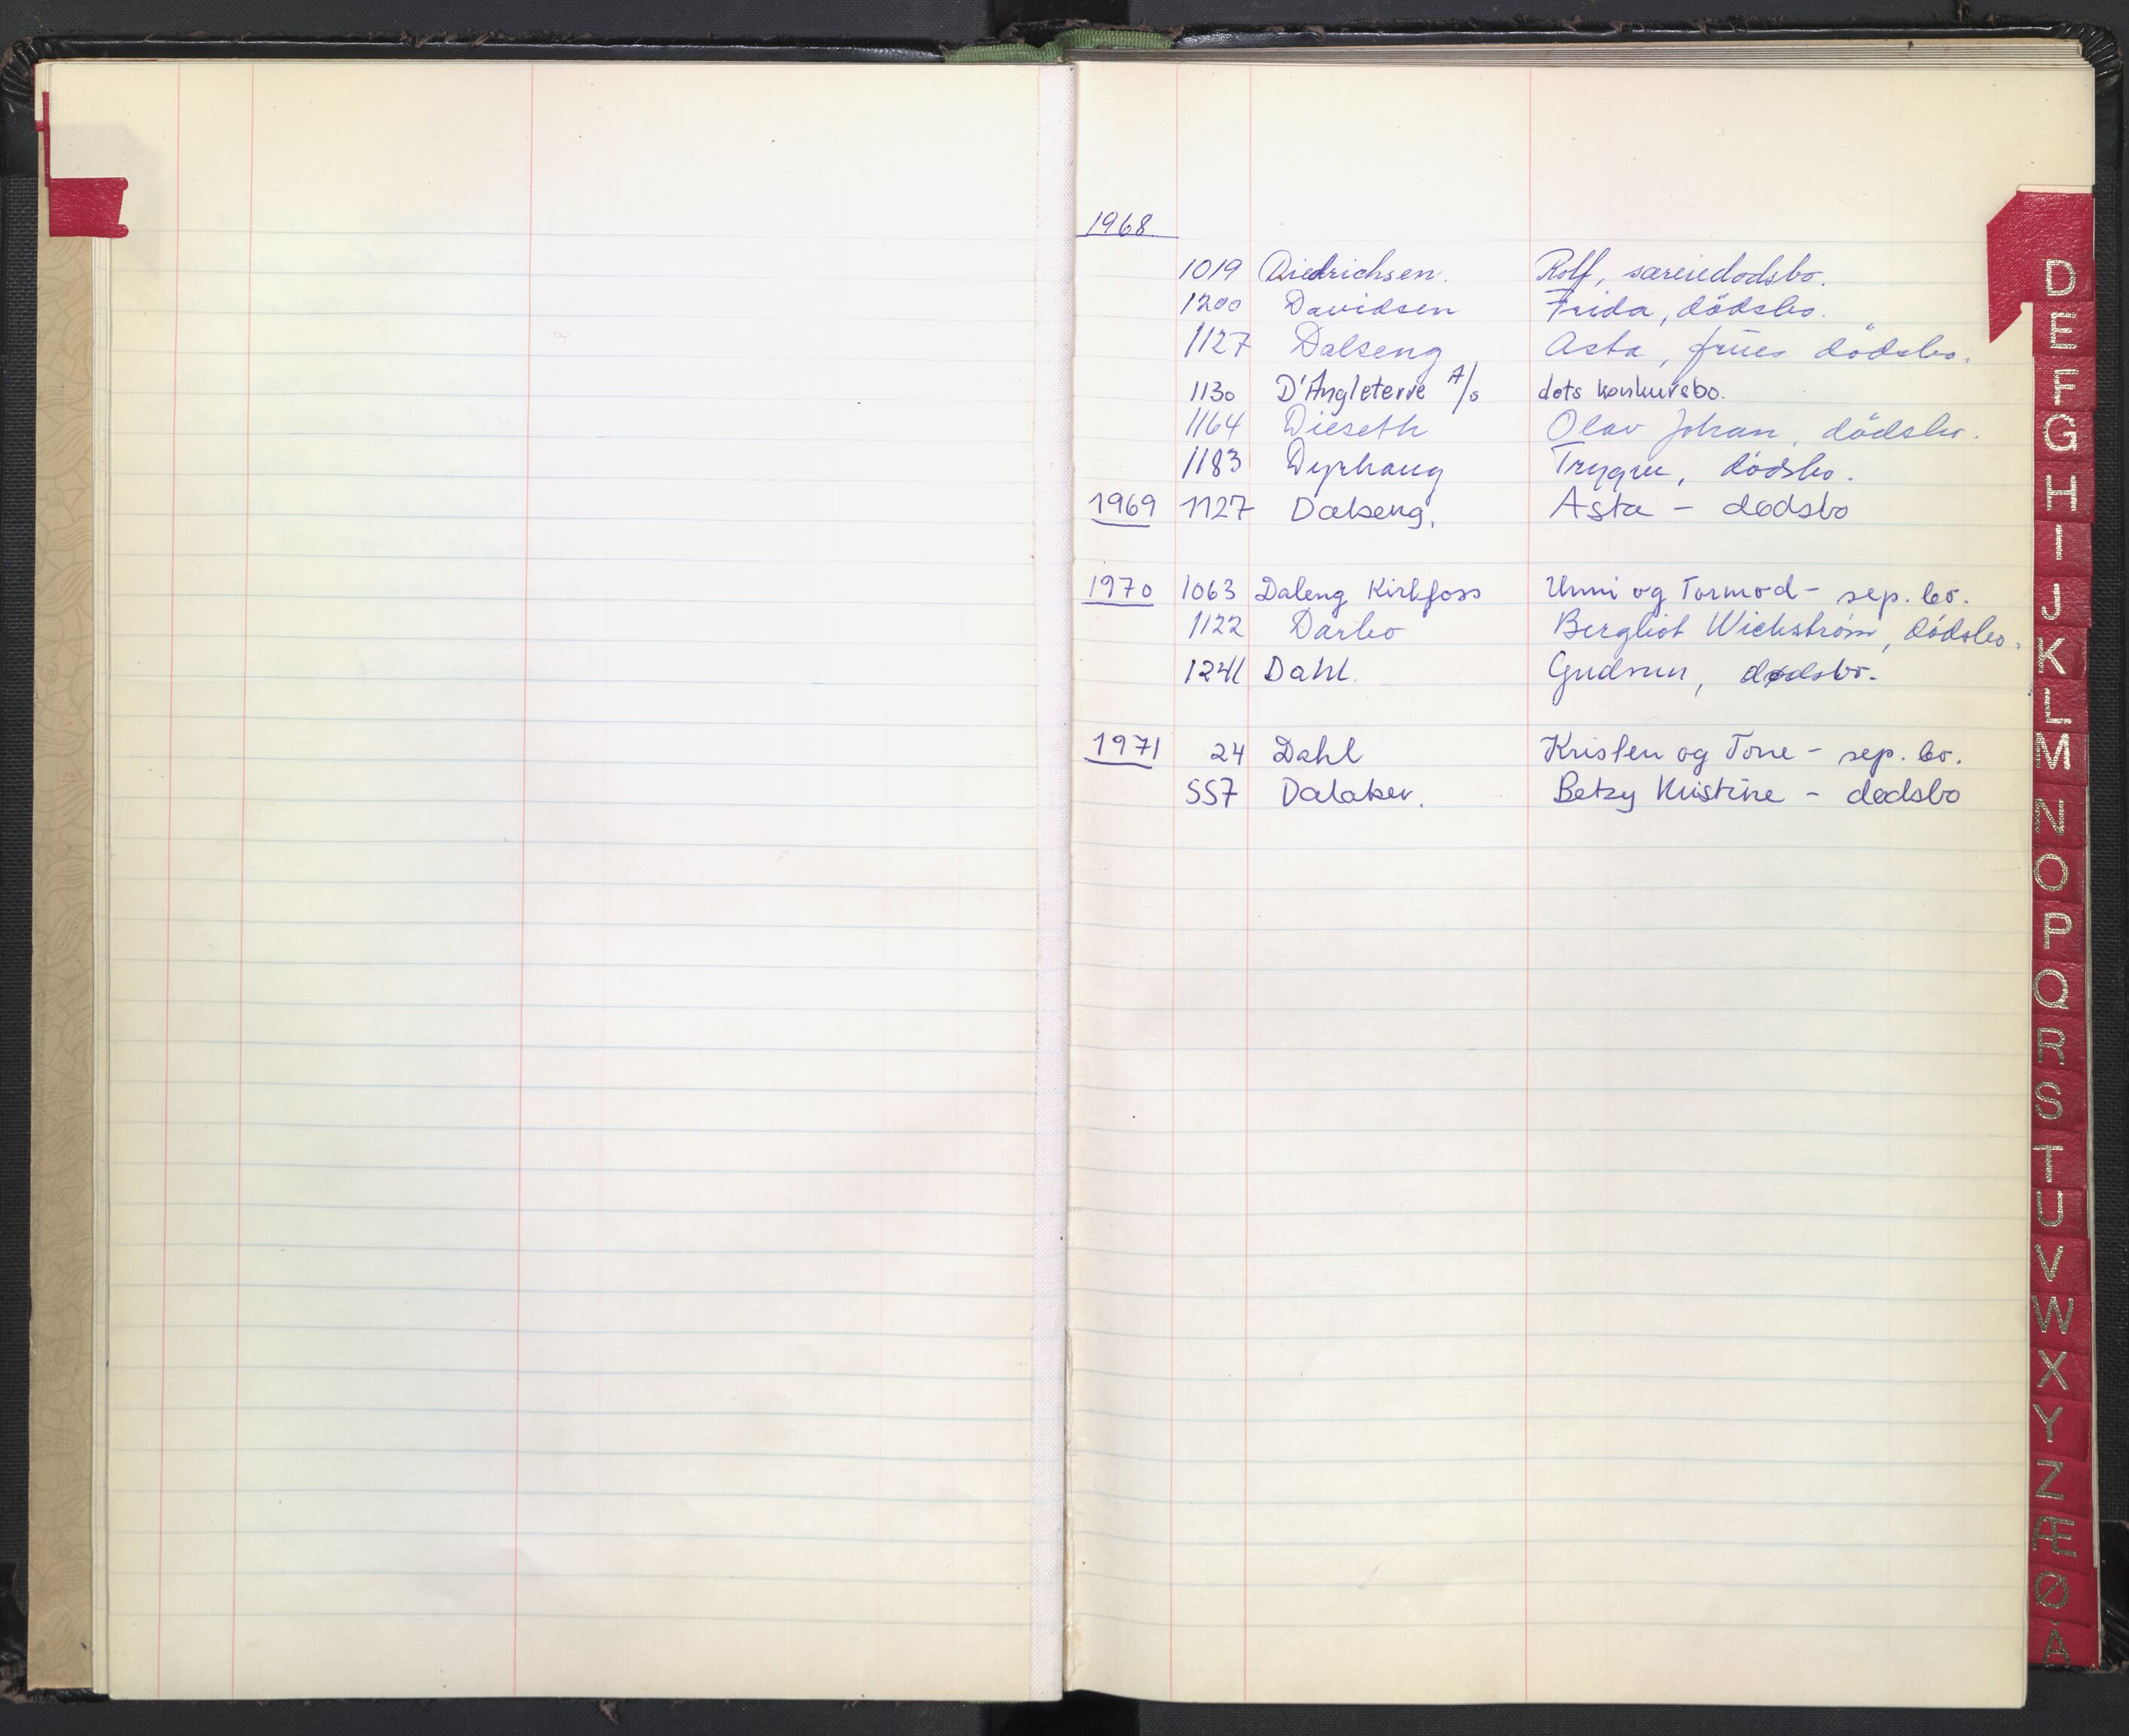 1968
1019 Diedrichsen. Rolf, særeiedødsbo.
1200 Davidsen Frida, dödsbo.
1127 Dalseng Asta, frues dödsbo.
1130 D'Angleterre A/s dets konkursbo.
1164 Dieseth Olav Johan, dödsbo.
1183 Dyrhaug Trygve, dödsbo.
1969 1127 Dalseng. Asta - dødsbo
1970 1063 Daleng Kirkfoss Unni og Tormod - sep. bo.
1122 Darbo Bergliot Wickstrøm, dödsbo.
1241 Dahl. Gudrun, dødsbo.
1971 24 Dahl Kristen og Tone - sep. bo.
557 Dalaker. Betzy Kristine - dødsbo
D
E
F
G
H
I
J
K
L
M
N
O
P
Q
R
S
T
U
V
W
X
Y
Z
Æ
Ø
Å